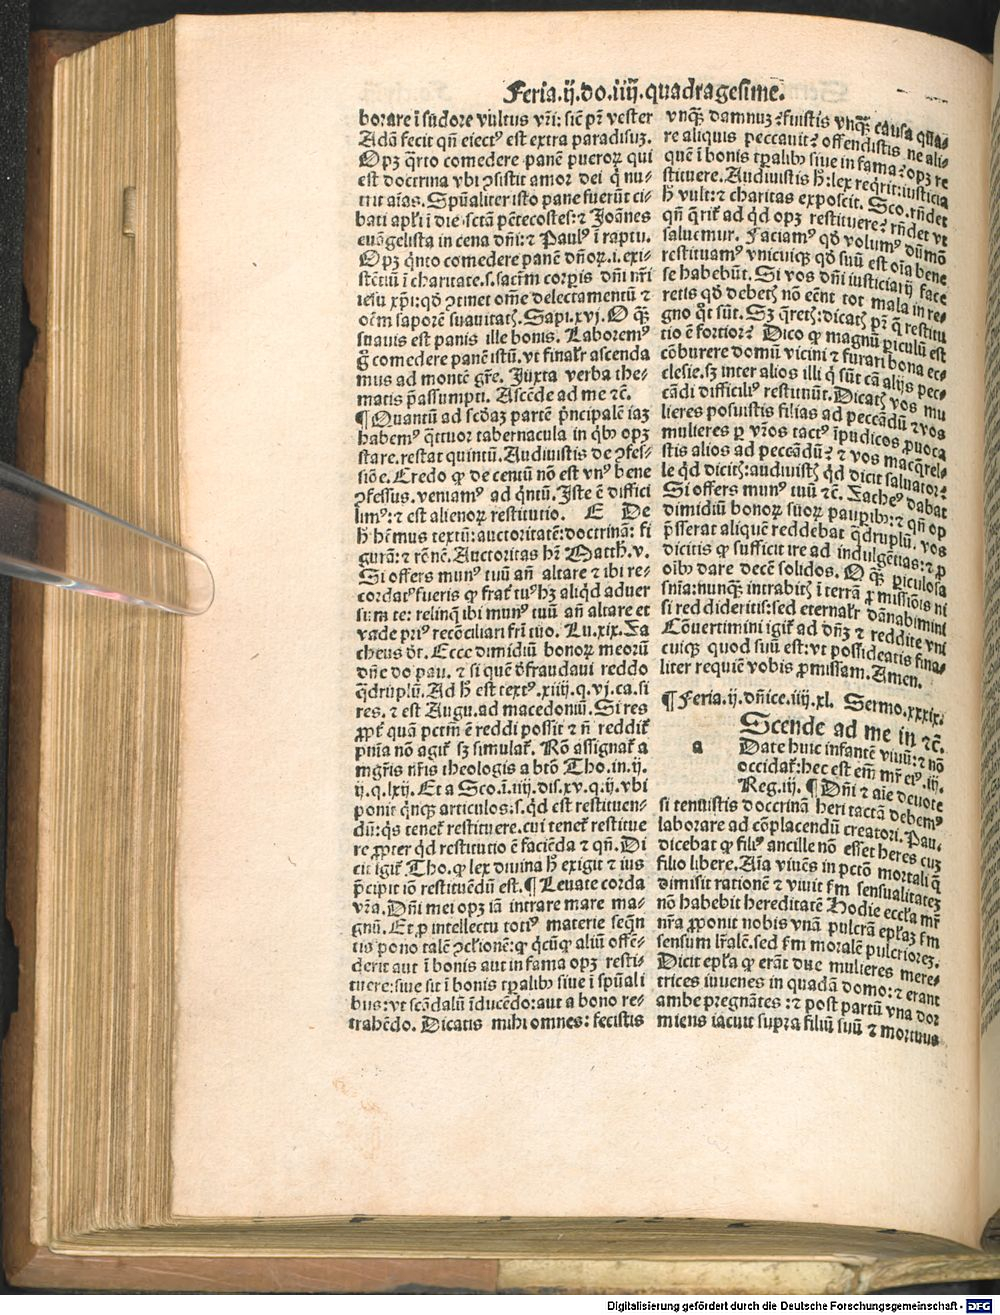 Feria.ij.do.iiij.quadragesime.
borare ī sudore vultus vr̄i: sic̄ pr̄ vester
Adā fecit qn̄ eiectꝰ est extra paradisuꝫ.
Opꝫ q̄rto comedere panē pueroꝝ qui
est doctrina vbi ꝯsistit amor dei q̄ nu⸗
trit aīas. Spūaliter isto pane fuerūt ci⸗
bati apl̄i ī die sctā pētecostes: ⁊ Joānes
euāgelista in cena dn̄i: ⁊ Paulꝰ ī raptu.
Opꝫ q̄nto comedere panē dn̄oꝝ .i. exi⸗
stētiū ī charitate .s. sacr̄m corpīs dn̄i nr̄i
iesu xp̄i: qd̄ ꝯtinet om̄e delectamentū ⁊
oēm saporē suauitatꝭ. Sapi.xvj. O qꝫ̄
suauis est panis ille bonis. Laboremꝰ
g̊ comedere panē istū. vt finalr̄ ascenda
mus ad montē gr̄e. Juxta verba the⸗
matis p̄assumpti. Ascēde ad me ⁊c̄.
¶ Quantū ad scd̄aꝫ partē p̄ncipalē iaꝫ
habemꝰ q̄ttuor tabernacula in q̄bꝰ opꝫ
stare. restat quintū. Audiuistis de ꝯfes⸗
siōe. Credo ꝙ de centū nō est vnꝰ bene
ꝯfessus. veniamꝰ ad q̄ntū. Iste ē diffici
limꝰ: ⁊ est alienoꝝ restitutio. E De
h̄ hēmus textū: auctoritatē: doctrinā: fi
gurā: ⁊ rōnē. Auctoritas hr̄ Matth.v.
Si offers munꝰ tuū an̄ altare ⁊ ibi re⸗
cordatꝰ fueris ꝙ frat̄ tuꝰ hꝫ aliqd̄ aduer
sum te: relinq̄ ibi munꝰ tuū an̄ altare et
vade priꝰ recōciliari fr̄i tuo. Lu.xix. Za
cheus dt̄. Ecce dimidiū bonoꝝ meorū
dn̄e do pau. ⁊ si quē d̄fraudaui reddo
q̄druplū. Ad h̄ est textꝰ .xiiij.q.vj.ca. si
res. ⁊ est Augu. ad macedoniū. Si res
ꝓpt̄ quā pctm̄ ē reddi possit ⁊ n̄ reddit̄
pn̄ia nō agit̄ sꝫ simulat̄. Rō assignat̄ a
mgr̄is nr̄is theologis a bt̄o Tho. in .ij.
ij.q.lxij. Et a Sco. ī .iiij.dis.xv.q.ij. vbi
ponit q̄nqꝫ articulos .s. qd̄ est restituen⸗
dū: q̄s tenet̄ restituere. cui tenet̄ restitue
re ꝓpter qd̄ restitutio ē faciēda ⁊ qn̄. Di
cit igit̄ Tho. ꝙ lex diuina h̄ exigit ⁊ ius
p̄cipit iō restituēdū est. ¶ Leuate corda
vr̄a. Dn̄i mei opꝫ iā intrare mare ma⸗
gnū. Et ꝓ intellectu totiꝰ materie seqn̄
tis pono talē ꝯcl̄ionē: ꝙ q̄cūqꝫ aliū offē⸗
derit aut ī bonis aut in fama opꝫ resti⸗
tuere: siue sit ī bonis tp̄alibꝰ siue ī spūali
bus: vt scādalū īducēdo: aut a bono re⸗
trahēdo. Dicatis mihi omnes: fecistis
vnqꝫ̄ damnuꝫ? fuistis vnqꝫ̄ causa qua⸗
re aliquis peccauit? offendistis ne ali⸗
quē ī bonis tp̄alibꝰ siue in fama? opꝫ re
stituere. Audiuistis h̄: lex reqrit: iusticia
h̄ vult: ⁊ charitas exposcit. Sco. rn̄det
qn̄ q̄rit̄ ad qd̄ opꝫ restituere? rn̄det vt
saluemur. Faciamꝰ qd̄ volumꝰ dūmō
restituamꝰ vnicuiqꝫ qd̄ suū est oīa bene
se habebūt. Si vos dn̄i iusticiarij face
retis qd̄ debetꝭ nō eēnt tot mala in re⸗
gno q̄t sūt. Sꝫ q̄retꝭ: dicatꝭ pr̄ q̄ restitu
tio ē fortior? Dico ꝙ magnū piculū est
cōburere domū vicini ⁊ furari bona ec⸗
clesie. sꝫ inter alios illi q̄ sūt cā alijs pec⸗
cādi difficiliꝰ restituūt. Dicatꝭ vos mu
lieres posuistis filias ad peccādū ⁊ vos
mulieres p vr̄os tactꝰ īpudicos ꝓuoca
stis alios ad peccādū? ⁊ vos macq̄rel⸗
le qd̄ dicitꝭ: audiuistꝭ qd̄ dicit saluator?
Si offers munꝰ tuū ⁊c̄. Zacheꝰ dabat
dimidiū bonoꝝ suoꝝ paupibꝰ: ⁊ qn̄ op
p̄sserat aliquē reddebat q̄druplū. vos
dicitis ꝙ sufficit ire ad indulgētias: ⁊ ꝓ
oībꝰ dare decē solidos. O qꝫ̄ piculosa
sn̄ia: nunqꝫ̄ intrabitꝭ ī terrā ꝓmissiōis ni
si red dideritis: sed eternalr̄ dānabimini
Cōuertimini igit̄ ad dn̄ꝫ ⁊ reddite vni
cuiqꝫ quod suū est: vt possideatis fina⸗
liter requiē vobis ꝓmissam. Amen.
¶ Feria.ij. dn̄ice.iiij.xl. Sermo.xxxix.
Scende ad me in ⁊c̄.
a Date huic infantē viuū: ⁊ nō
occidat̄: hec est em̄ mr̄ eiꝰ .iij.
Reg.iij. ¶ Dn̄i ⁊ aīe deuote
si tenuistis doccrinā heri tactā debemꝰ
laborare ad cōplacendū creatori. Pau.
dicebat ꝙ filiꝰ ancille nō esset heres cuꝫ
filio libere. Aīa viuēs in pctō mortali q̄
dimisit rationē ⁊ viuit ẜm sensualitateꝫ
nō habebit hereditatē Hodie eccl̄a mr̄
nr̄a ꝓponit nobis vnā pulcrā epl̄aꝫ ẜm
sensum lr̄alē. sed ẜm moralē pulcrioreꝫ.
Dicit epl̄a ꝙ erāt due mulieres mere⸗
trices iuuenes in quadā domo: ⁊ erant
ambe pregnātes : ⁊ post partū vna dor
miens iacuit supra filiū suū ⁊ mortuus
Digitalisierung gefördert durch die Deutsche Forschungsgemeinschaft - DFG